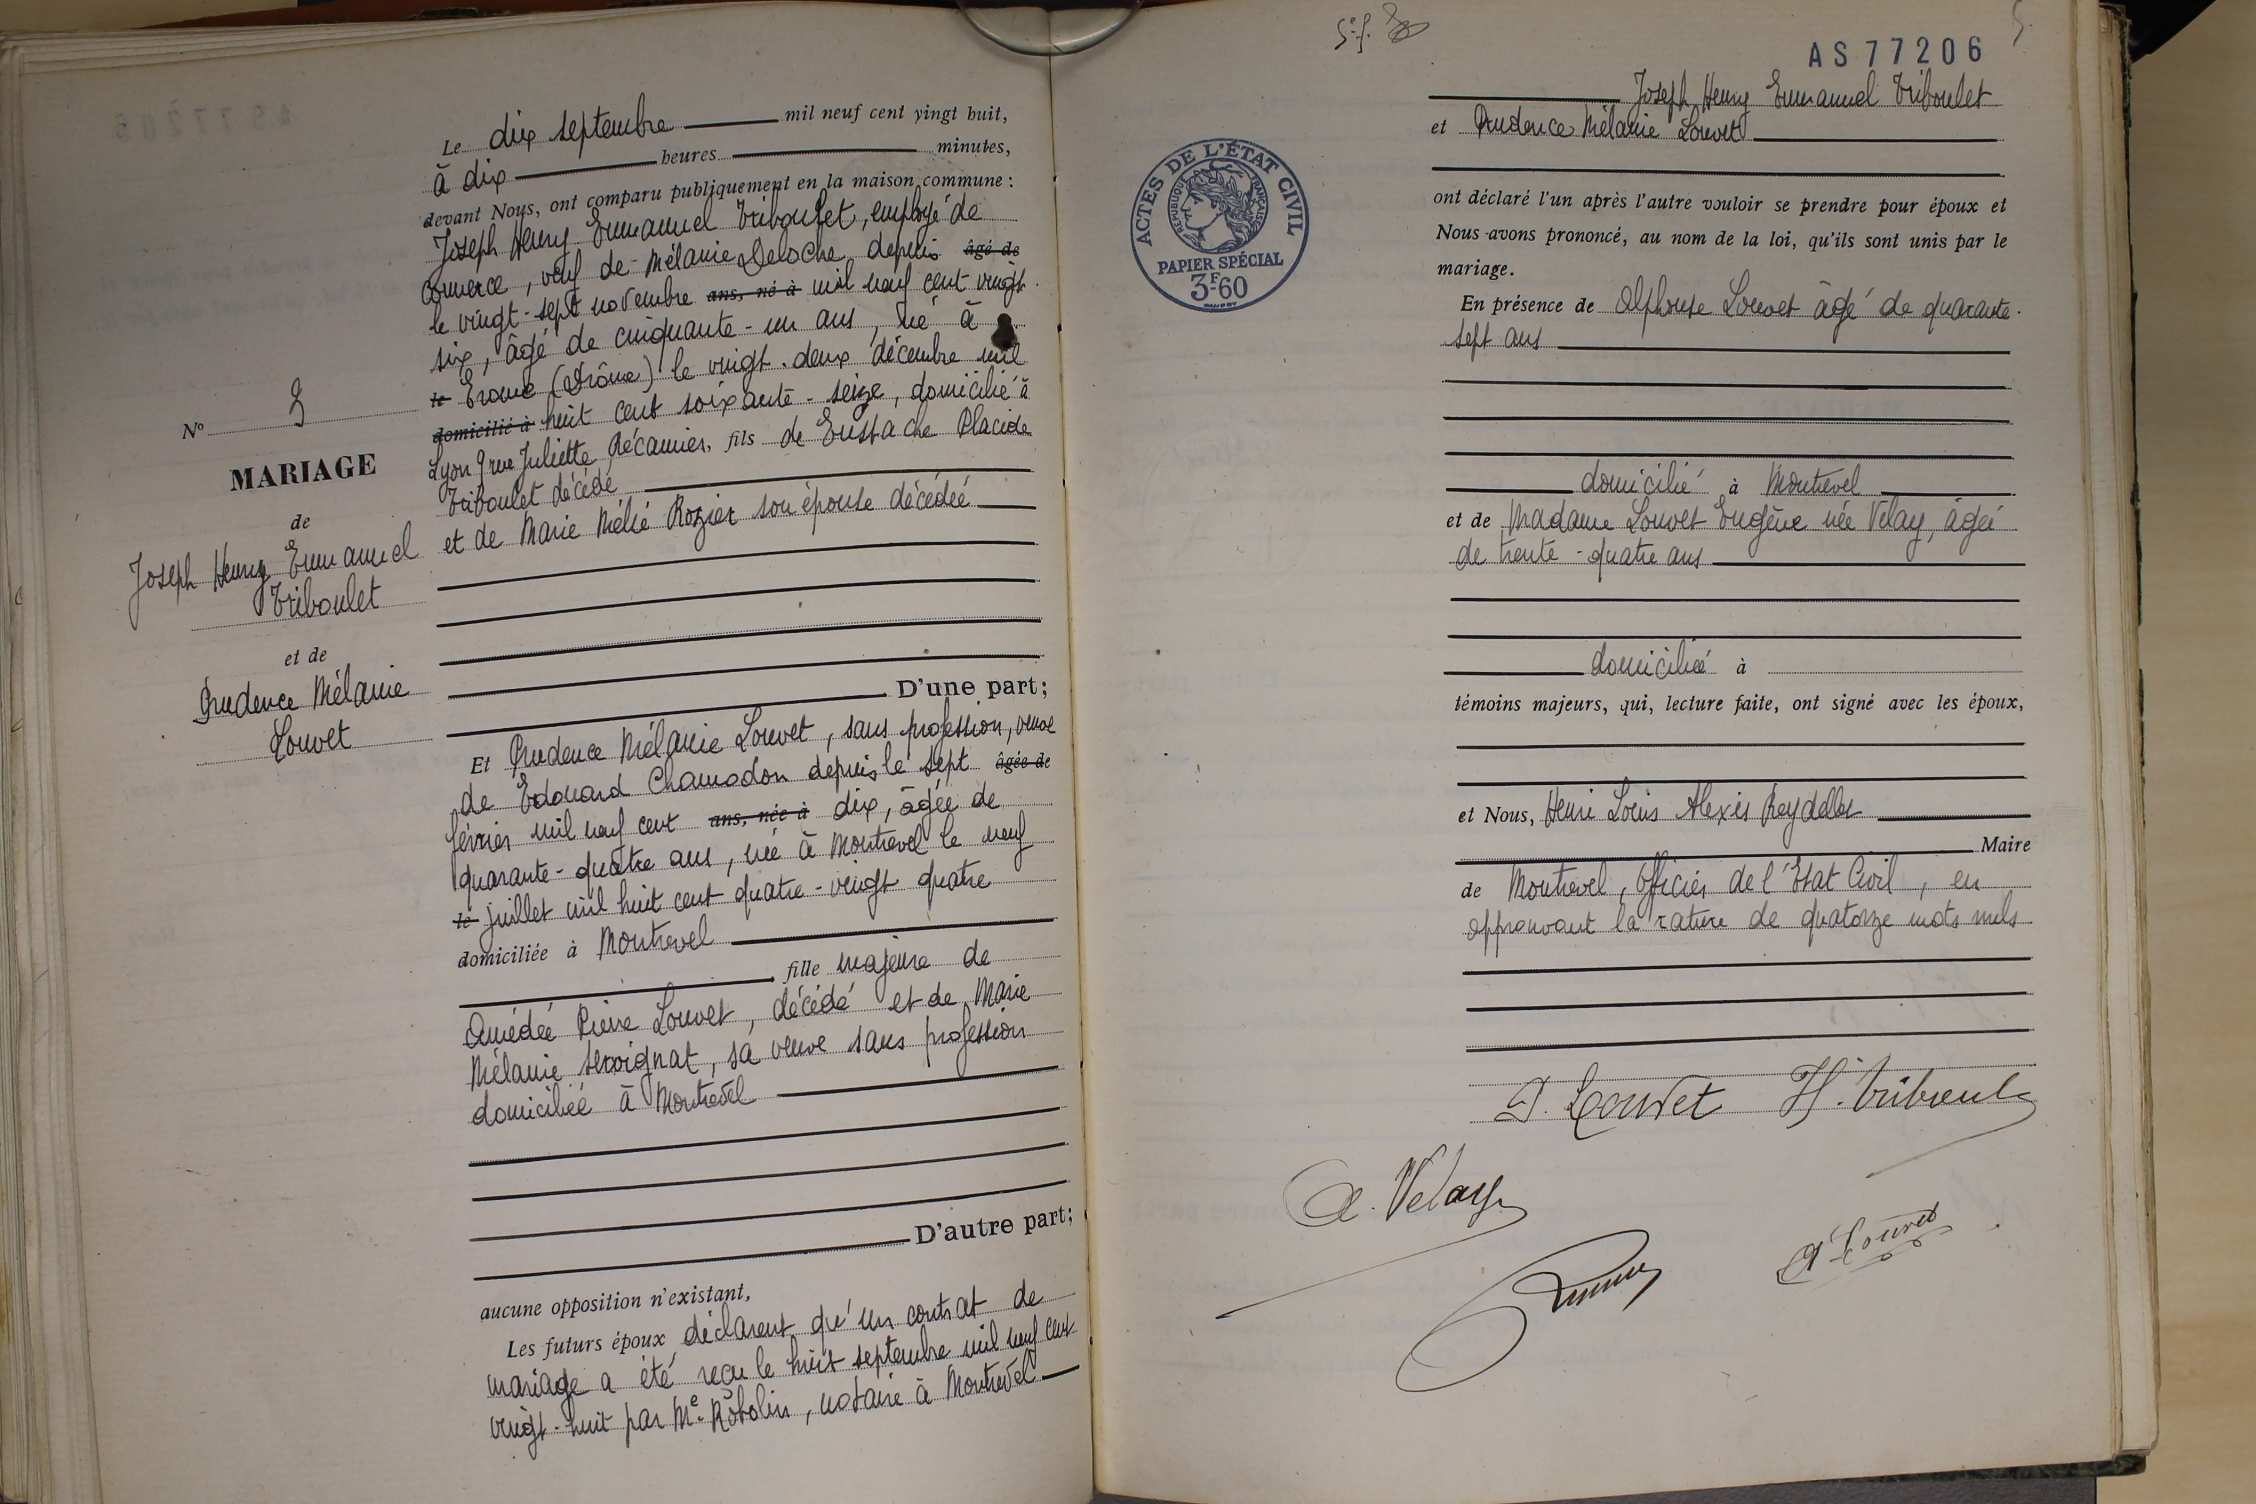 Le dix septembre mil neuf cent vingt huit,
à dix heures minutes,
devant Nous, ont comparu publiquement en la maison commune :
Joseph Henry Emmanuel Triboulet, employé de
commerce, veuf de Mélanie Deloche depuis âgé de
le vingt-sept novembre ans, né à mil neuf cent vingt-
six, âgé de cinquante-un ans, né à
le Erome (Drôme) le vingt-deux décembre mil
domicilié à huit cent soixante-seize, domicilié à
Lyon 9 rue Juliette Récamier, fils de Eustache Placide
Triboulet décédé
et de Marie Mélie Rozier son épouse décédée
D'une part;
Et Prudence Mélanie Louvet, sans profession, veuve
de Edouard Chamodon depuis le sept âgée de
février mil neuf cent ans, née à dix, âgée de
quarante-quatre ans, née à Montrevel le neuf
le juillet mil huit cent quatre-vingt quatre
domiciliée à Montrevel
fille majeure de
Amédée Pierre Louvet, décédé et de Marie
Mélanie Servignat, sa veuve sans profession
domiciliée à Montrevel
D'autre part;
aucune opposition n'existant,
Les futurs époux déclarent qu'un contrat de
mariage a été reçu le huit septembre mil neuf cent
vingt-huit par Me Robolin, notaire à Montrevel
No
MARIAGE
de
Joseph Henry Emmanuel
Triboulet
et de
Prudence Mélanie
Louvet
AS77206
Joseph Henry Emmanuel Triboulet
et Prudence Mélanie Louvet
ACTES DE L'ÉTAT CIVIL
RÉPUBLIQUE FRANÇAISE
PAPIER SPÉCIAL
3F.60
ont déclaré l'un après l'autre vouloir se prendre pour époux et
Nous avons prononcé, au nom de la loi, qu'ils sont unis par le
mariage.
En présence de Alphonse Louvet âgé de quarante-
sept ans
domicilié à Montrevel
et de Madame Louvet Eugène née Velay, âgée
de trente-quatre ans
domiciliée à
témoins majeurs, qui, lecture faite, ont signé avec les époux,
et Nous, Henri Louis Alexis Reydellet
Maire
de Montrevel, Officier de l'Etat Civil, en
approuvant la rature de quatorze mots nuls
P. Louvet H. Triboulet
A. Velay
A. Louvet